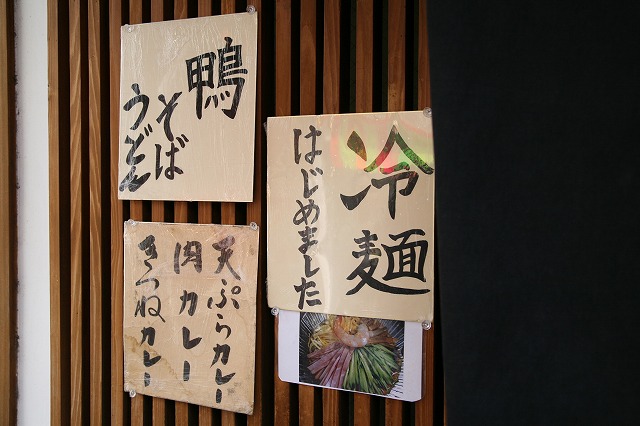 鴨
そば
うどん
冷麺
はじめました
天ぷらカレー
肉カレー
きつねカレー